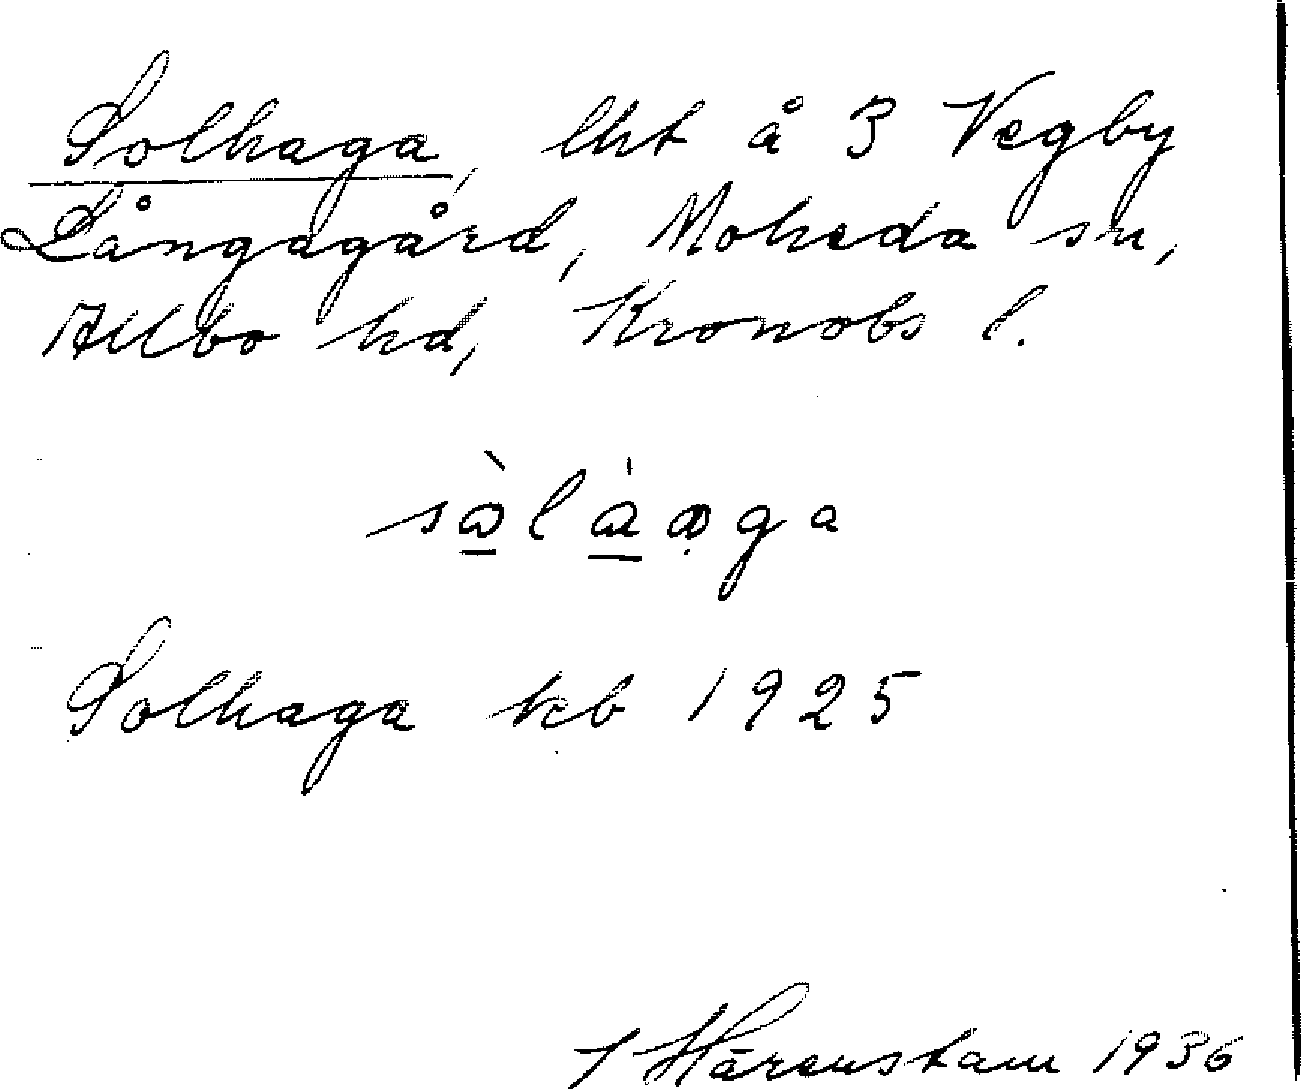 Solhaga, lht å 3 Vegby
Långagård, Moheda sn,
Allbo hd, Kronobs l.
Solhaga kb 1925
J Härenstam 1936